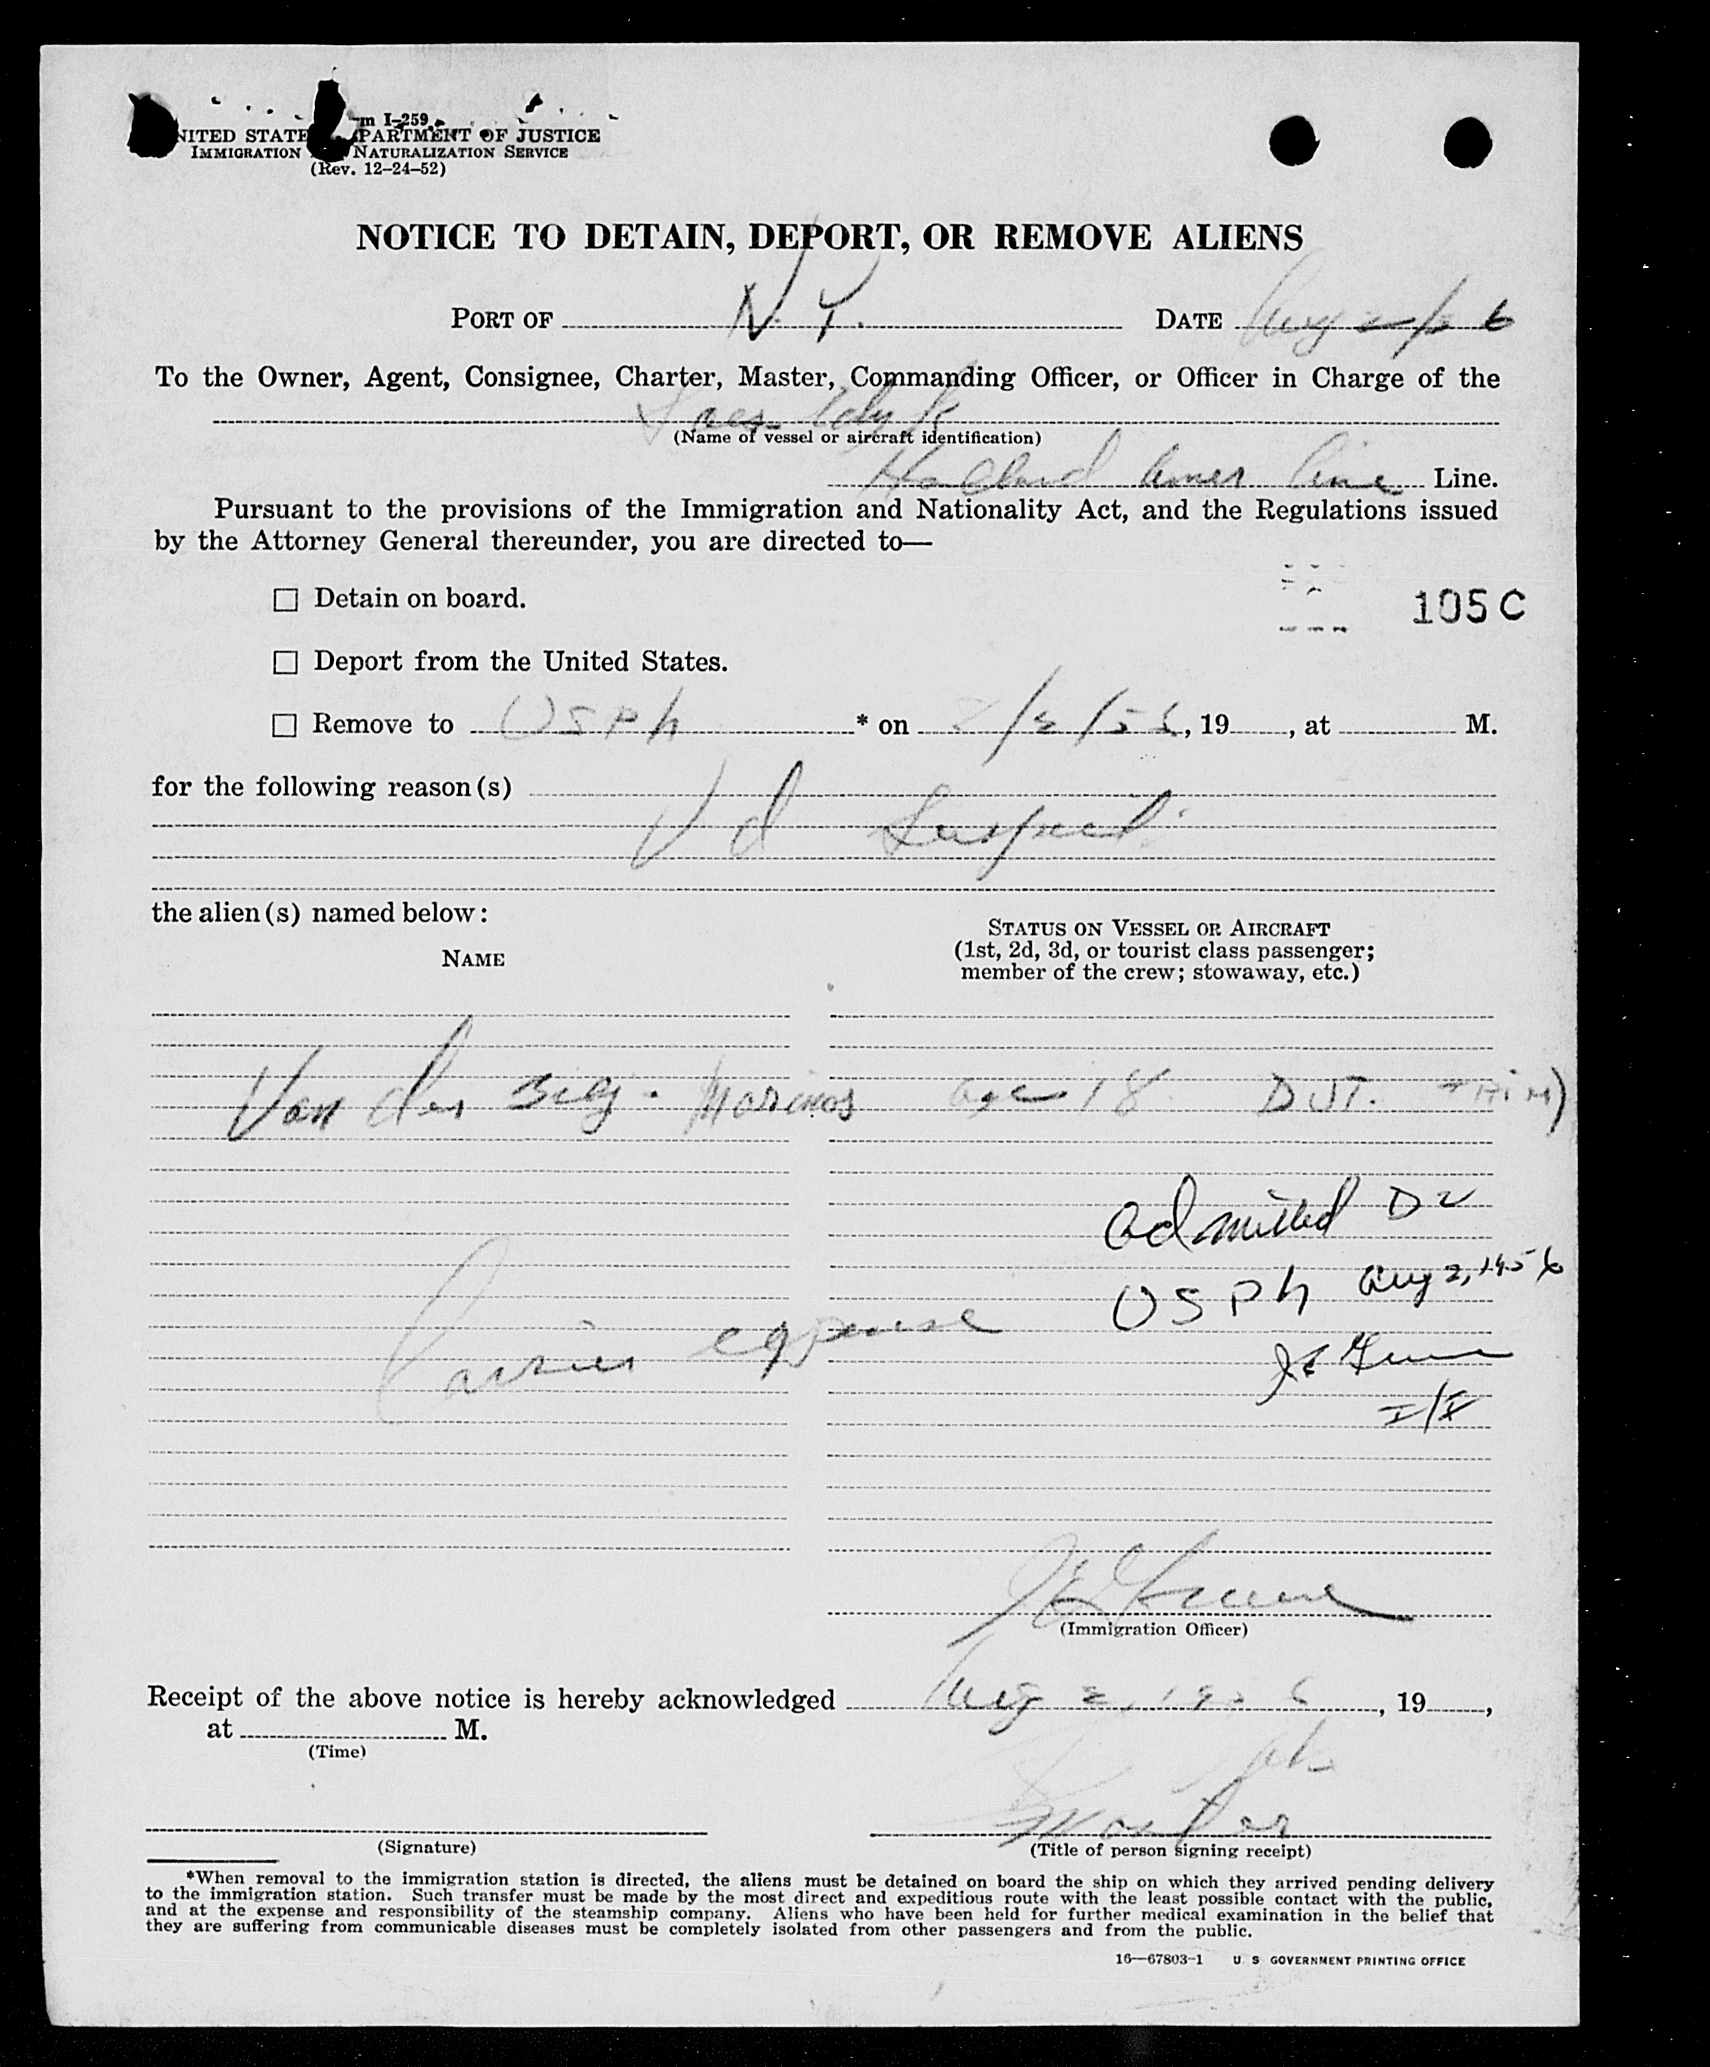 m I-259
UNITED STATES DEPARTMENT OF JUSTICE
IMMIGRATION NATURALIZATION SERVICE
(Rev. 12-24-52)
NOTICE TO DETAIN, DEPORT, OR REMOVE ALIENS
PORT OF N.Y. DATE Aug 2/56
To the Owner, Agent, Consignee, Charter, Master, Commanding Officer, or Officer in Charge of the
(Name of vessel or aircraft identification)
Holland Amer Line Line.
Pursuant to the provisions of the Immigration and Nationality Act, and the Regulations issued
by the Attorney General thereunder, you are directed to—
☐ Detain on board.
105C
☐ Deport from the United States.
☐ Remove to USPH * on 8/2/56, 19 , at M.
for the following reason(s)
Vd Suspect
the alien(s) named below:
NAME
STATUS ON VESSEL OR AIRCRAFT
(1st, 2d, 3d, or tourist class passenger;
member of the crew; stowaway, etc.)
Van der Marinos age 18 DUT.
Admitted
USPh Aug 2, 1956
Carrier expense
(Immigration Officer)
Receipt of the above notice is hereby acknowledged Aug 2, 1956, 19 ,
at M.
(Time)
Master
(Signature)
(Title of person signing receipt)
*When removal to the immigration station is directed, the aliens must be detained on board the ship on which they arrived pending delivery
to the immigration station. Such transfer must be made by the most direct and expeditious route with the least possible contact with the public,
and at the expense and responsibility of the steamship company. Aliens who have been held for further medical examination in the belief that
they are suffering from communicable diseases must be completely isolated from other passengers and from the public.
16—67803-1 U S GOVERNMENT PRINTING OFFICE